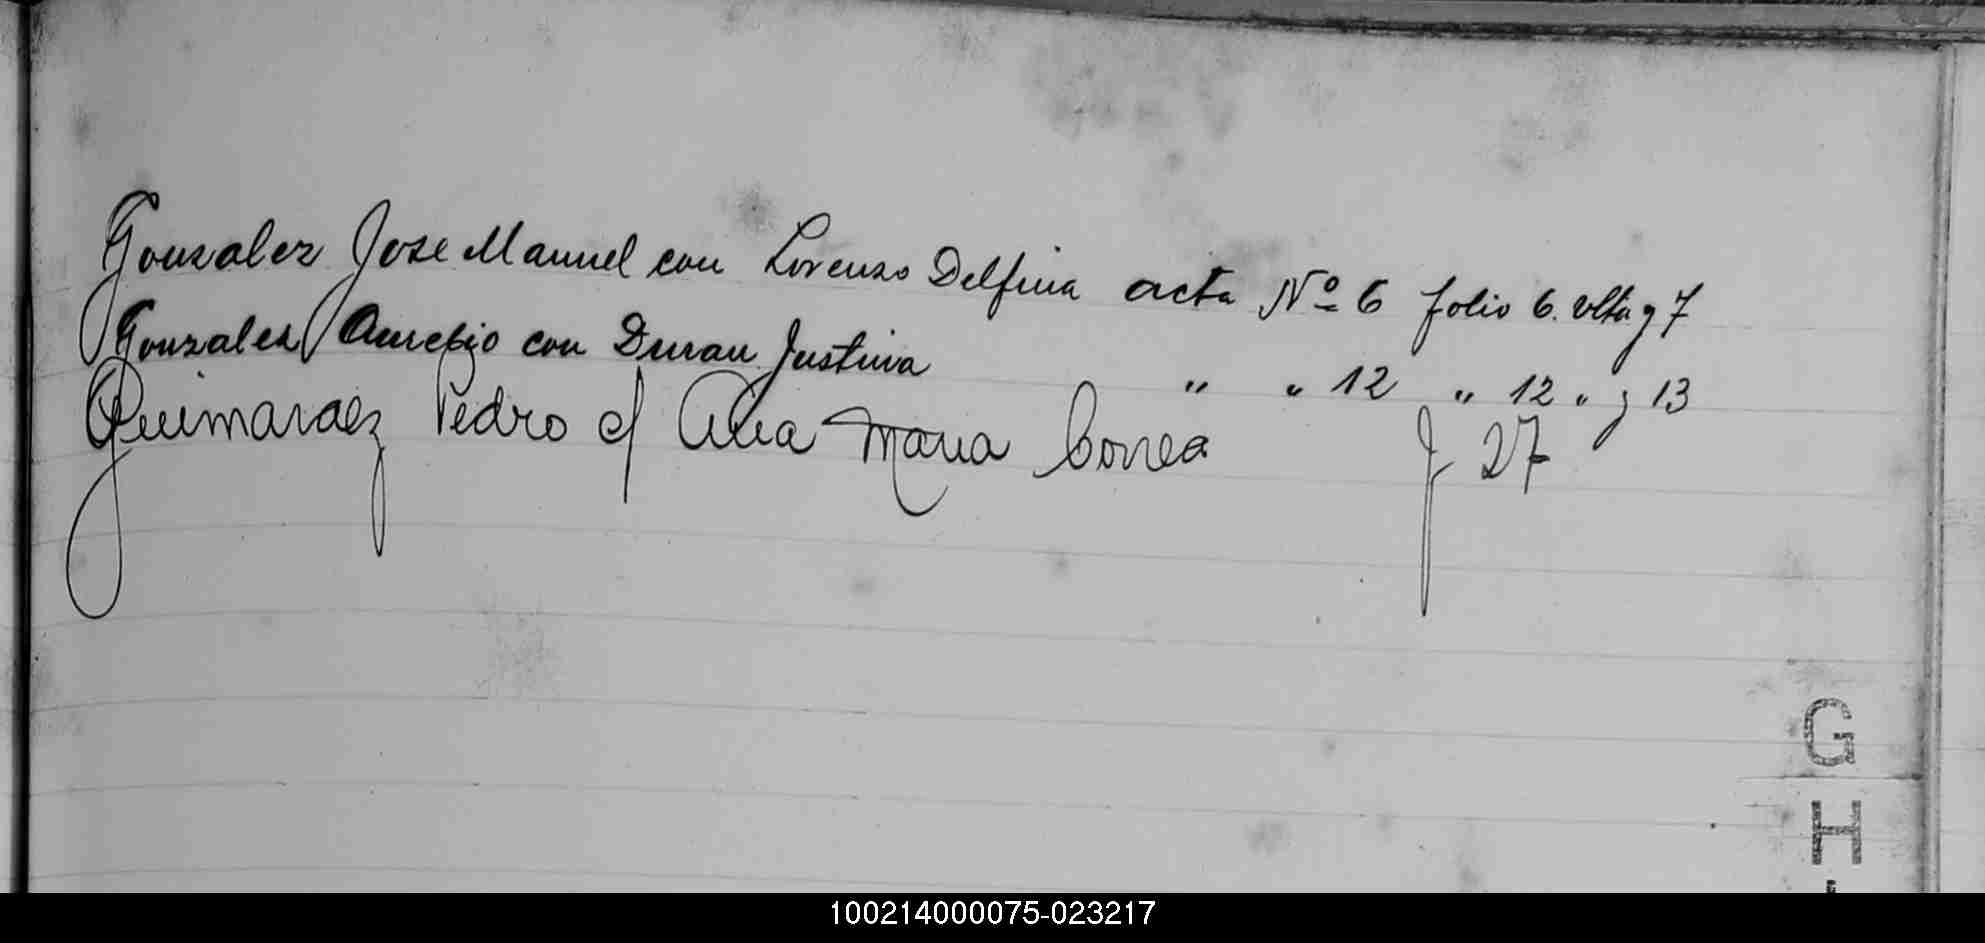 Gonzalez Jose Manuel con Lorenzo Delfina acta Nº 6 folio 6. vlta y 7
Gonzalez Aurelio con Duran Justina " " 12 " 12 " y 13
Guimaraez Pedro c/ Ana Maria Correa f 27
G
H
100214000075-023217